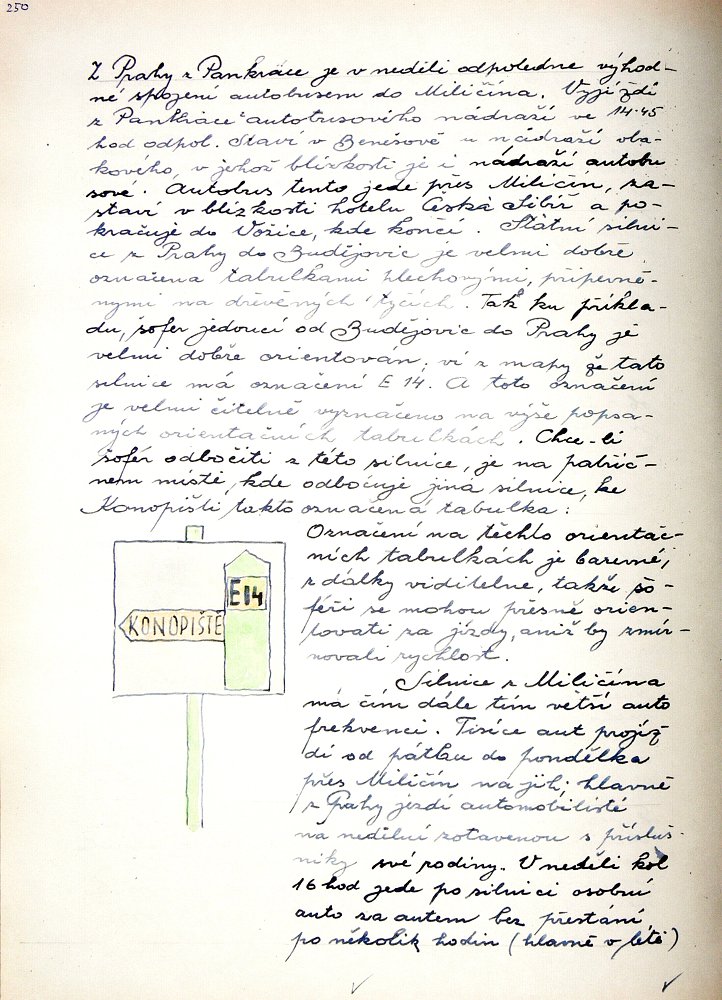 250
Z Prahy z Pankráce je v neděli odpoledne výhod-
né spojení autobusem do Miličína. Vyjíždí
z Pankráce autobusového nádraží ve 14.45
hod odpol. Staví v Benešově u nádraží vla-
kového, v jehož blízkosti je i nádraží autobu
sové. Autobus tento jede přes Miličín, za-
staví v blízkosti hotelu Česká Sibiř a po-
kračuje do Vožice, kde končí. Státní silni-
ce z Prahy do Budějovic je velmi dobře
označena tabulkami plechovými, připevně-
nými na dřevěných tyčích. Tak ku příkla-
du, šofer jedoucí od Budějovic do Prahy je
velmi dobře orientován; ví z mapy že tato
silnice má označení E 14. A toto označení
je velmi čitelně vyznačeno na výše popsa-
ných orientačních tabulkách. Chce-li
šofér odbočiti z této silnice, je na patřič-
ném místě, kde odbočuje jiná silnice, ke
Konopišti takto označená tabulka:
E14
KONOPIŠTĚ
Označení na těchto orientač-
ních tabulkách je barevné,
z dálky viditelné, takže šo-
féři se mohou přesně orien-
tovati za jízdy, aniž by zmír-
novali rychlost.
Silnice z Miličína
má čím dále tím větší auto
frekvenci. Tisíce aut projíž
dí od pátku do pondělka
přes Miličín na jih; hlavně
z Prahy jezdí automobilisté
na nedělní zotavenou s přísluš-
níky své rodiny. V neděli kol
16 hod jede po silnici osobní
auto za autem bez přestání
po několik hodin (hlavně v létě)